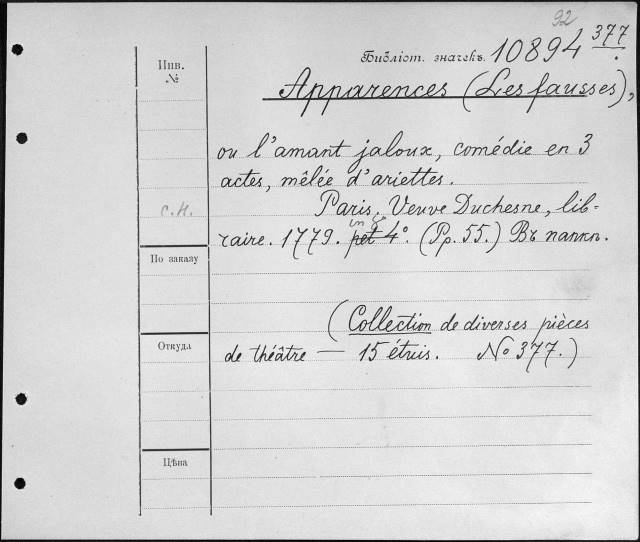 92
Инв. №
Библіот. значекъ. 10894 377
Apparences (Les fausses),
ou l'amant jaloux, comédie en 3
actes, mêlée d'ariettes.
с.н.
Paris, Veuve Duchesne, lib-
raire. 1779. pet 4°. (Pp. 55.) Въ папкѣ.
in 8°
По заказу
(Collection de diverses pièces
Откуда
de théâtre — 15 étuis. No 377.)
Цѣна